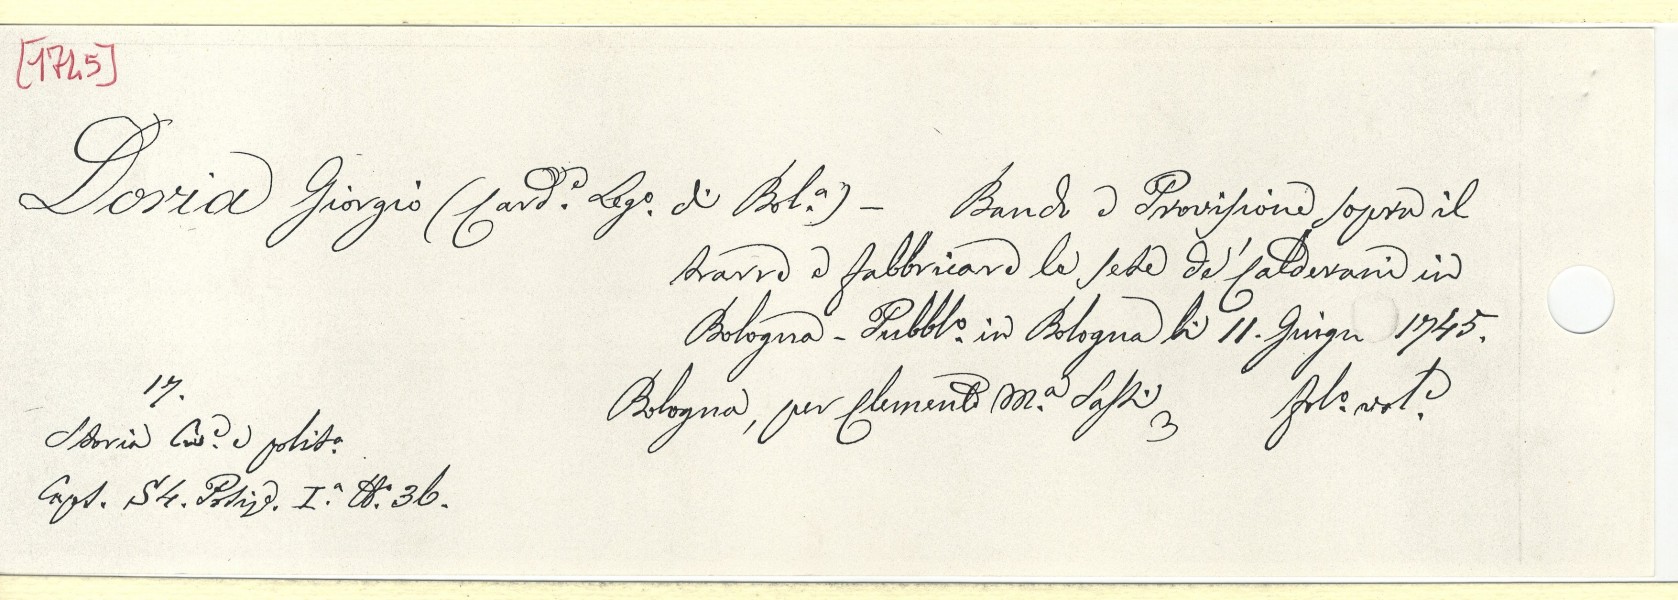 [1745]
Doria Giorgio (Card.e Leg.o di Bol.a) - Bando e Provisione sopra il
trarre e fabbricare le sete de' Calderani in
Bologna - Pubbl.o in Bologna li 11. Giugn 1745.
Bologna, per Clemente M.a Sassi, fol.o vol.e
17.
Storia Civ.e e polit.a
Caps. S4. Posiz.e I.a N. 36.